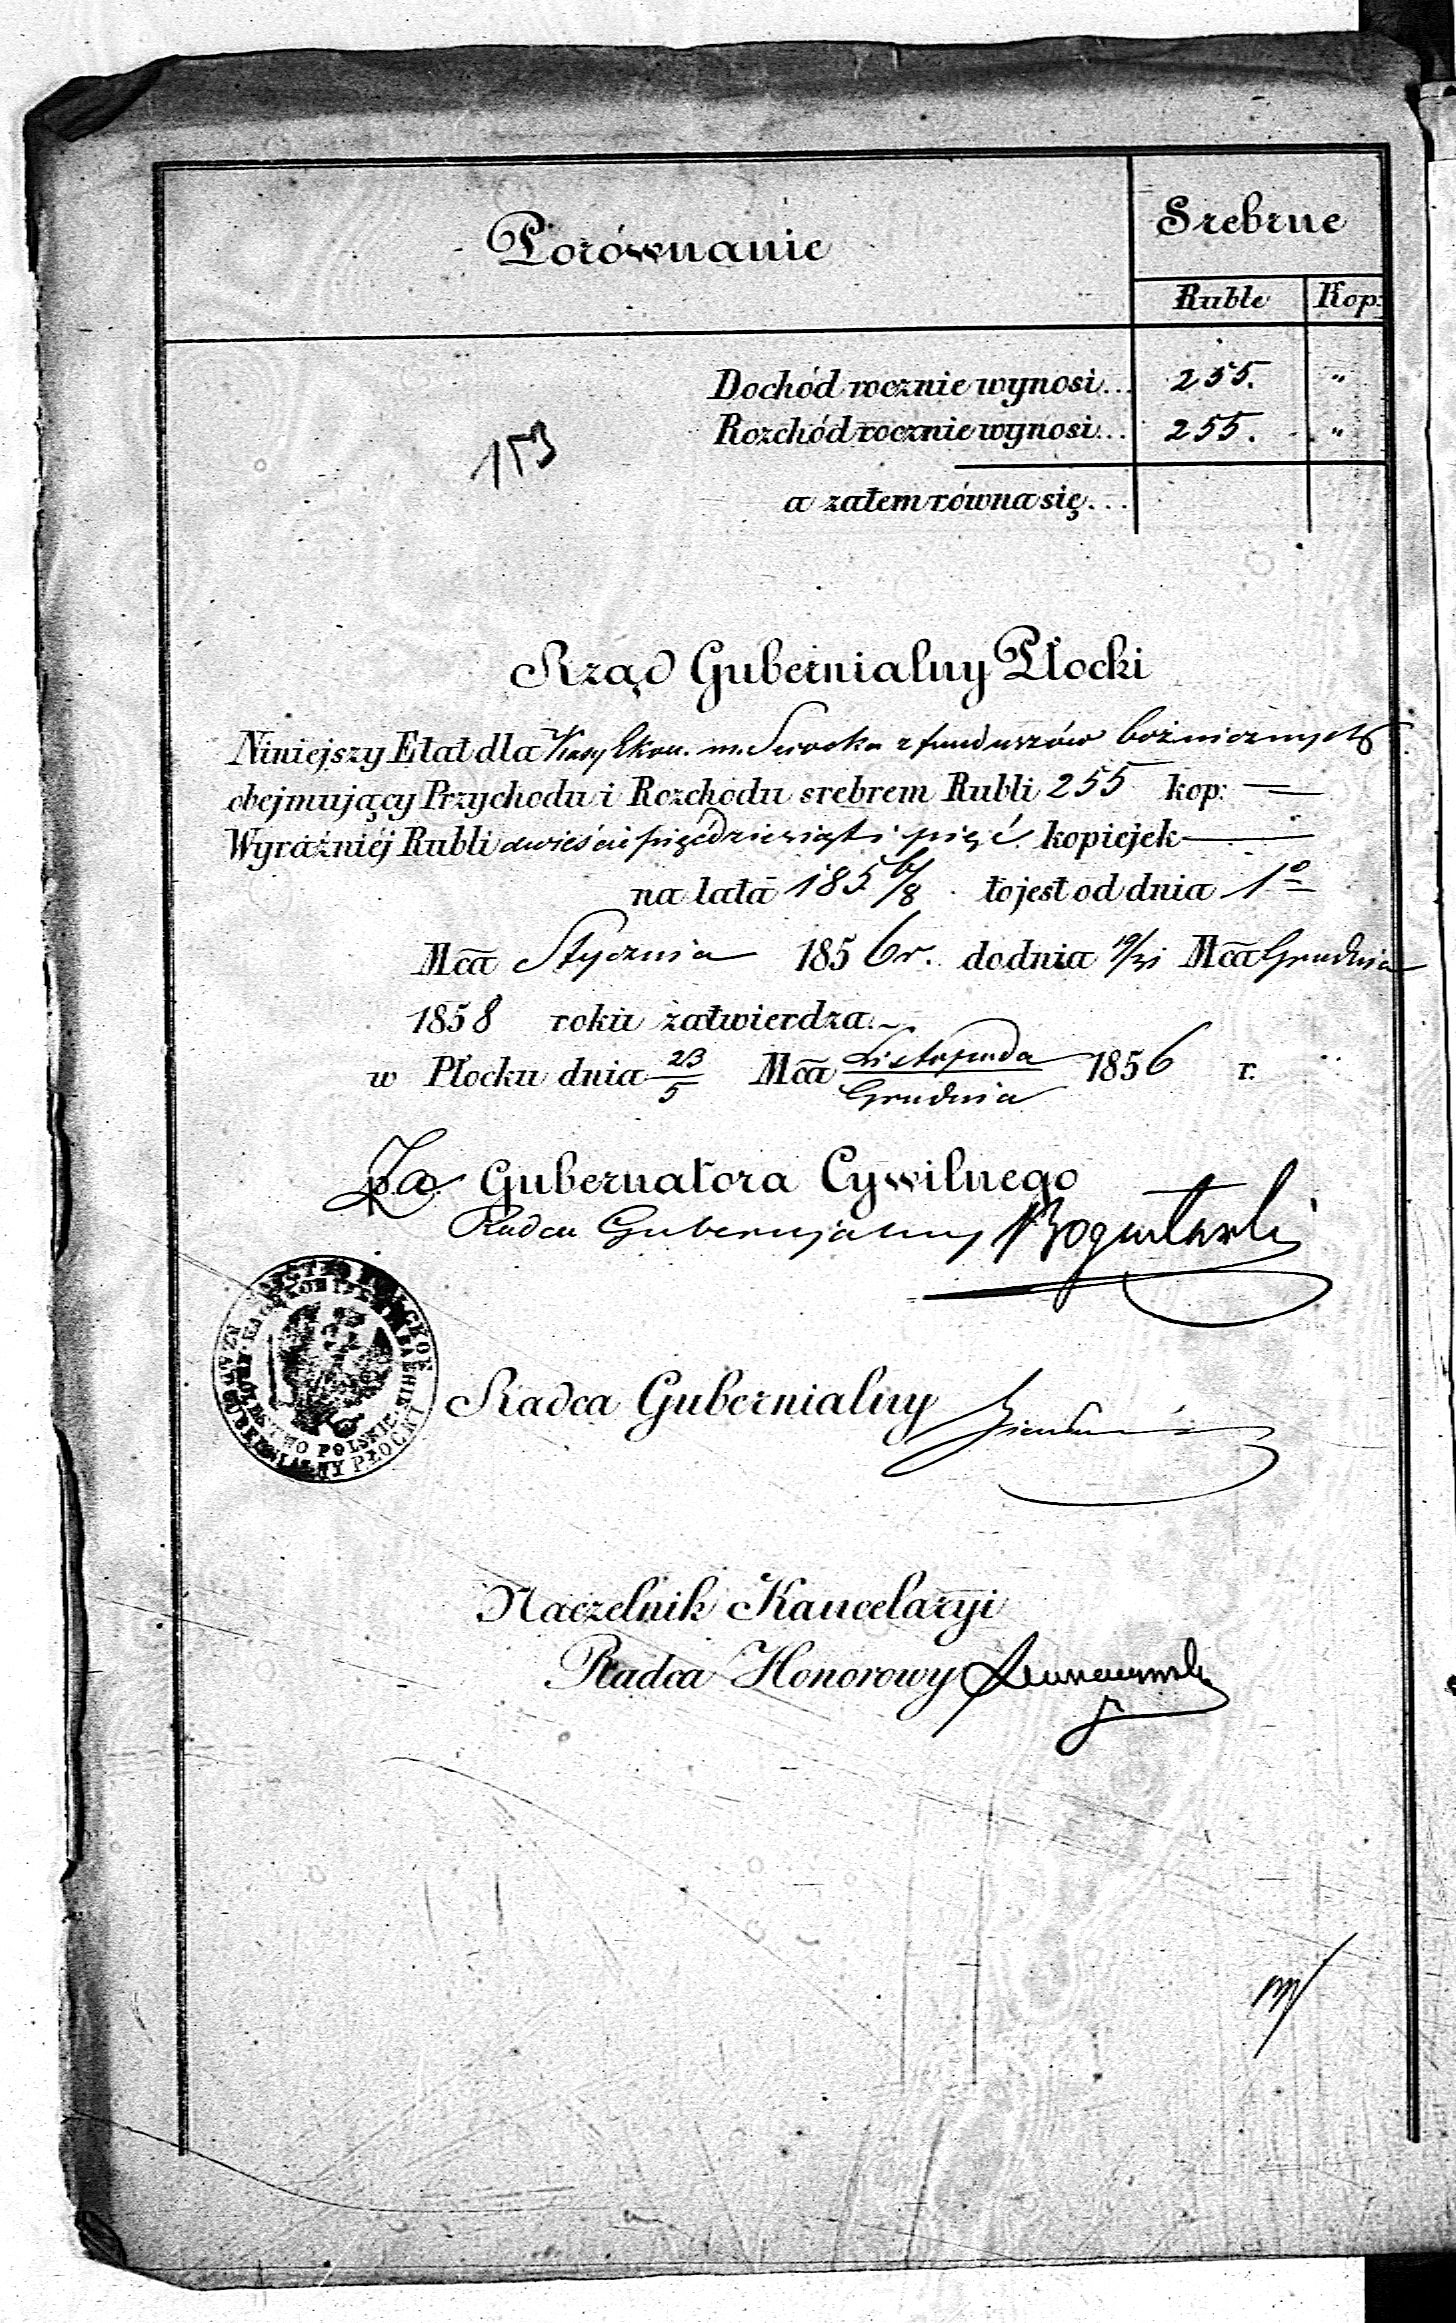 Porównanie
Srebrne
Ruble Kop:
Dochód rocznie wynosi... 255. "
Rozchód rocznie wynosi... 255. "
153
a zatem równa się...
Rząd Gubernialny Płocki
Niniejszy Etat dla Kasy Ekon. m. Serocka z funduszów bożnicznych
obejmujący Przychodu i Rozchodu srebrem Rubli 255 kop: —
Wyraźniéj Rubli dwieście pięćdziesiąt i pięć kopiejek —
na lata 185 6/8 to jest od dnia 1o
Mca Stycznia 1856 r. do dnia 19/31 Mca Grudnia
1858 roku zatwierdza.
w Płocku dnia 23/5 Mca Listopada/Grudnia 1856 r.
Za Gubernatora Cywilnego
Radca Gubernjalny
Radca Gubernialny
RZĄD GUBERNIALNY PŁOCKI
KRÓLESTWO POLSKIE
Naczelnik Kancelaryi
Radca Honorowy